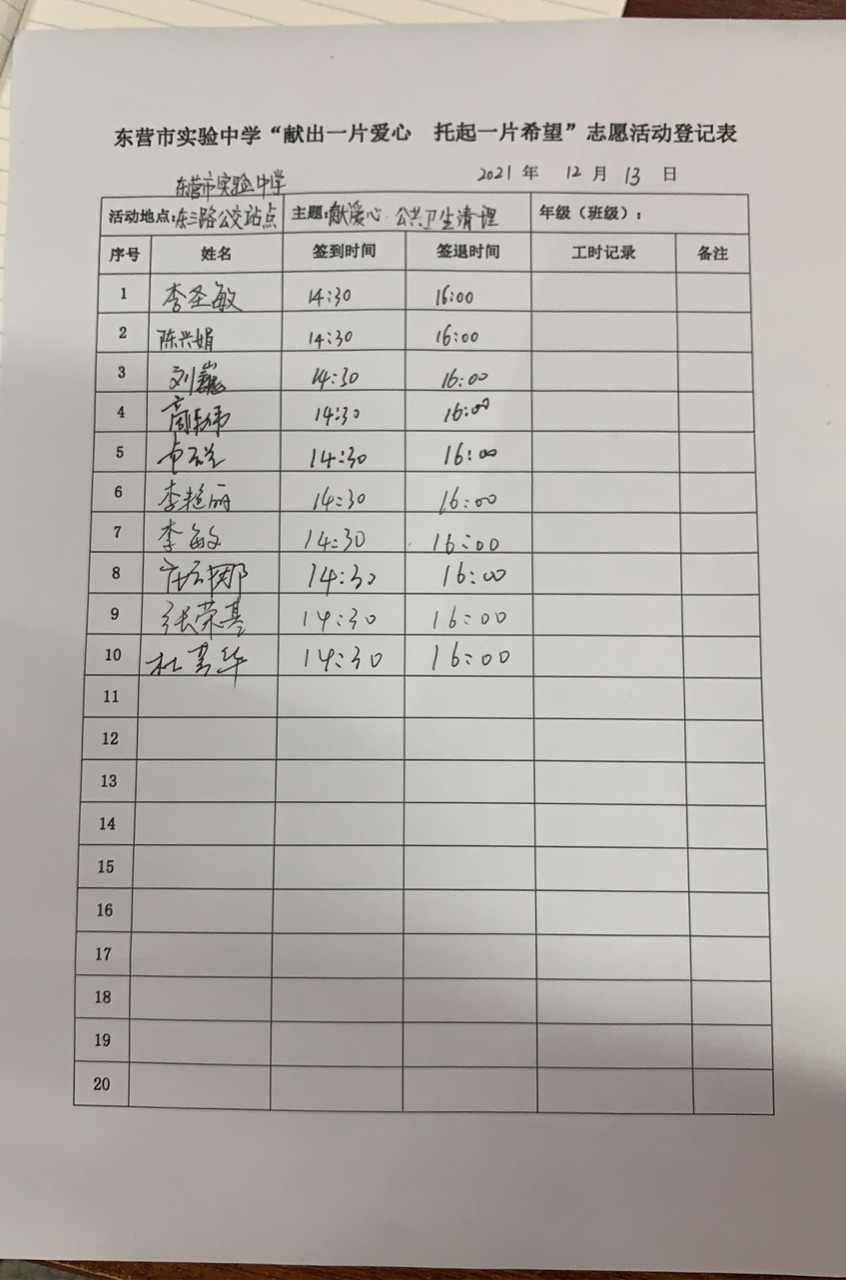 东营市实验中学“献出一片爱心 托起一片希望”志愿活动登记表
2021 年 12 月 13 日
东营市实验中学
活动地点：东三路公交站点 主题：献爱心 公共卫生清理 年级（班级）：
序号 姓名 签到时间 签退时间 工时记录 备注
1 李圣敏 14:30 16:00
2 陈兴娟 14:30 16:00
3 刘巍 14:30 16:00
4 14:30 16:00
5 14:30 16:00
6 李艳丽 14:30 16:00
7 李敏 14:30 16:00
8 14:30 16:00
9 张荣基 14:30 16:00
10 14:30 16:00
11
12
13
14
15
16
17
18
19
20